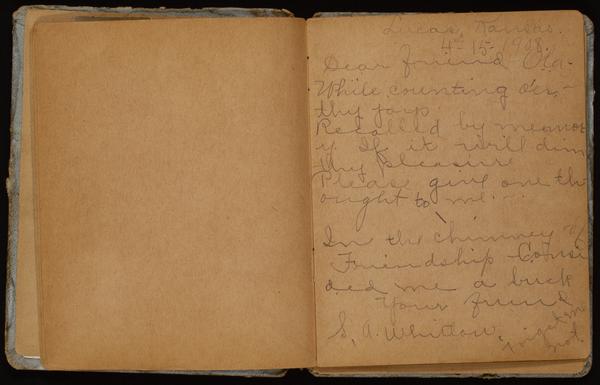 Lucas, Kansas.
4-15-1908.
Dear friend Ola-
While counting o'er
thy joys
Recalled by memor
y If it will dim
thy pleasure
Please give one th
ought to me.
In the chimney of
Friendship Consi
ded me a brick
Your friend
S. A. Whitlow
forget me
not.